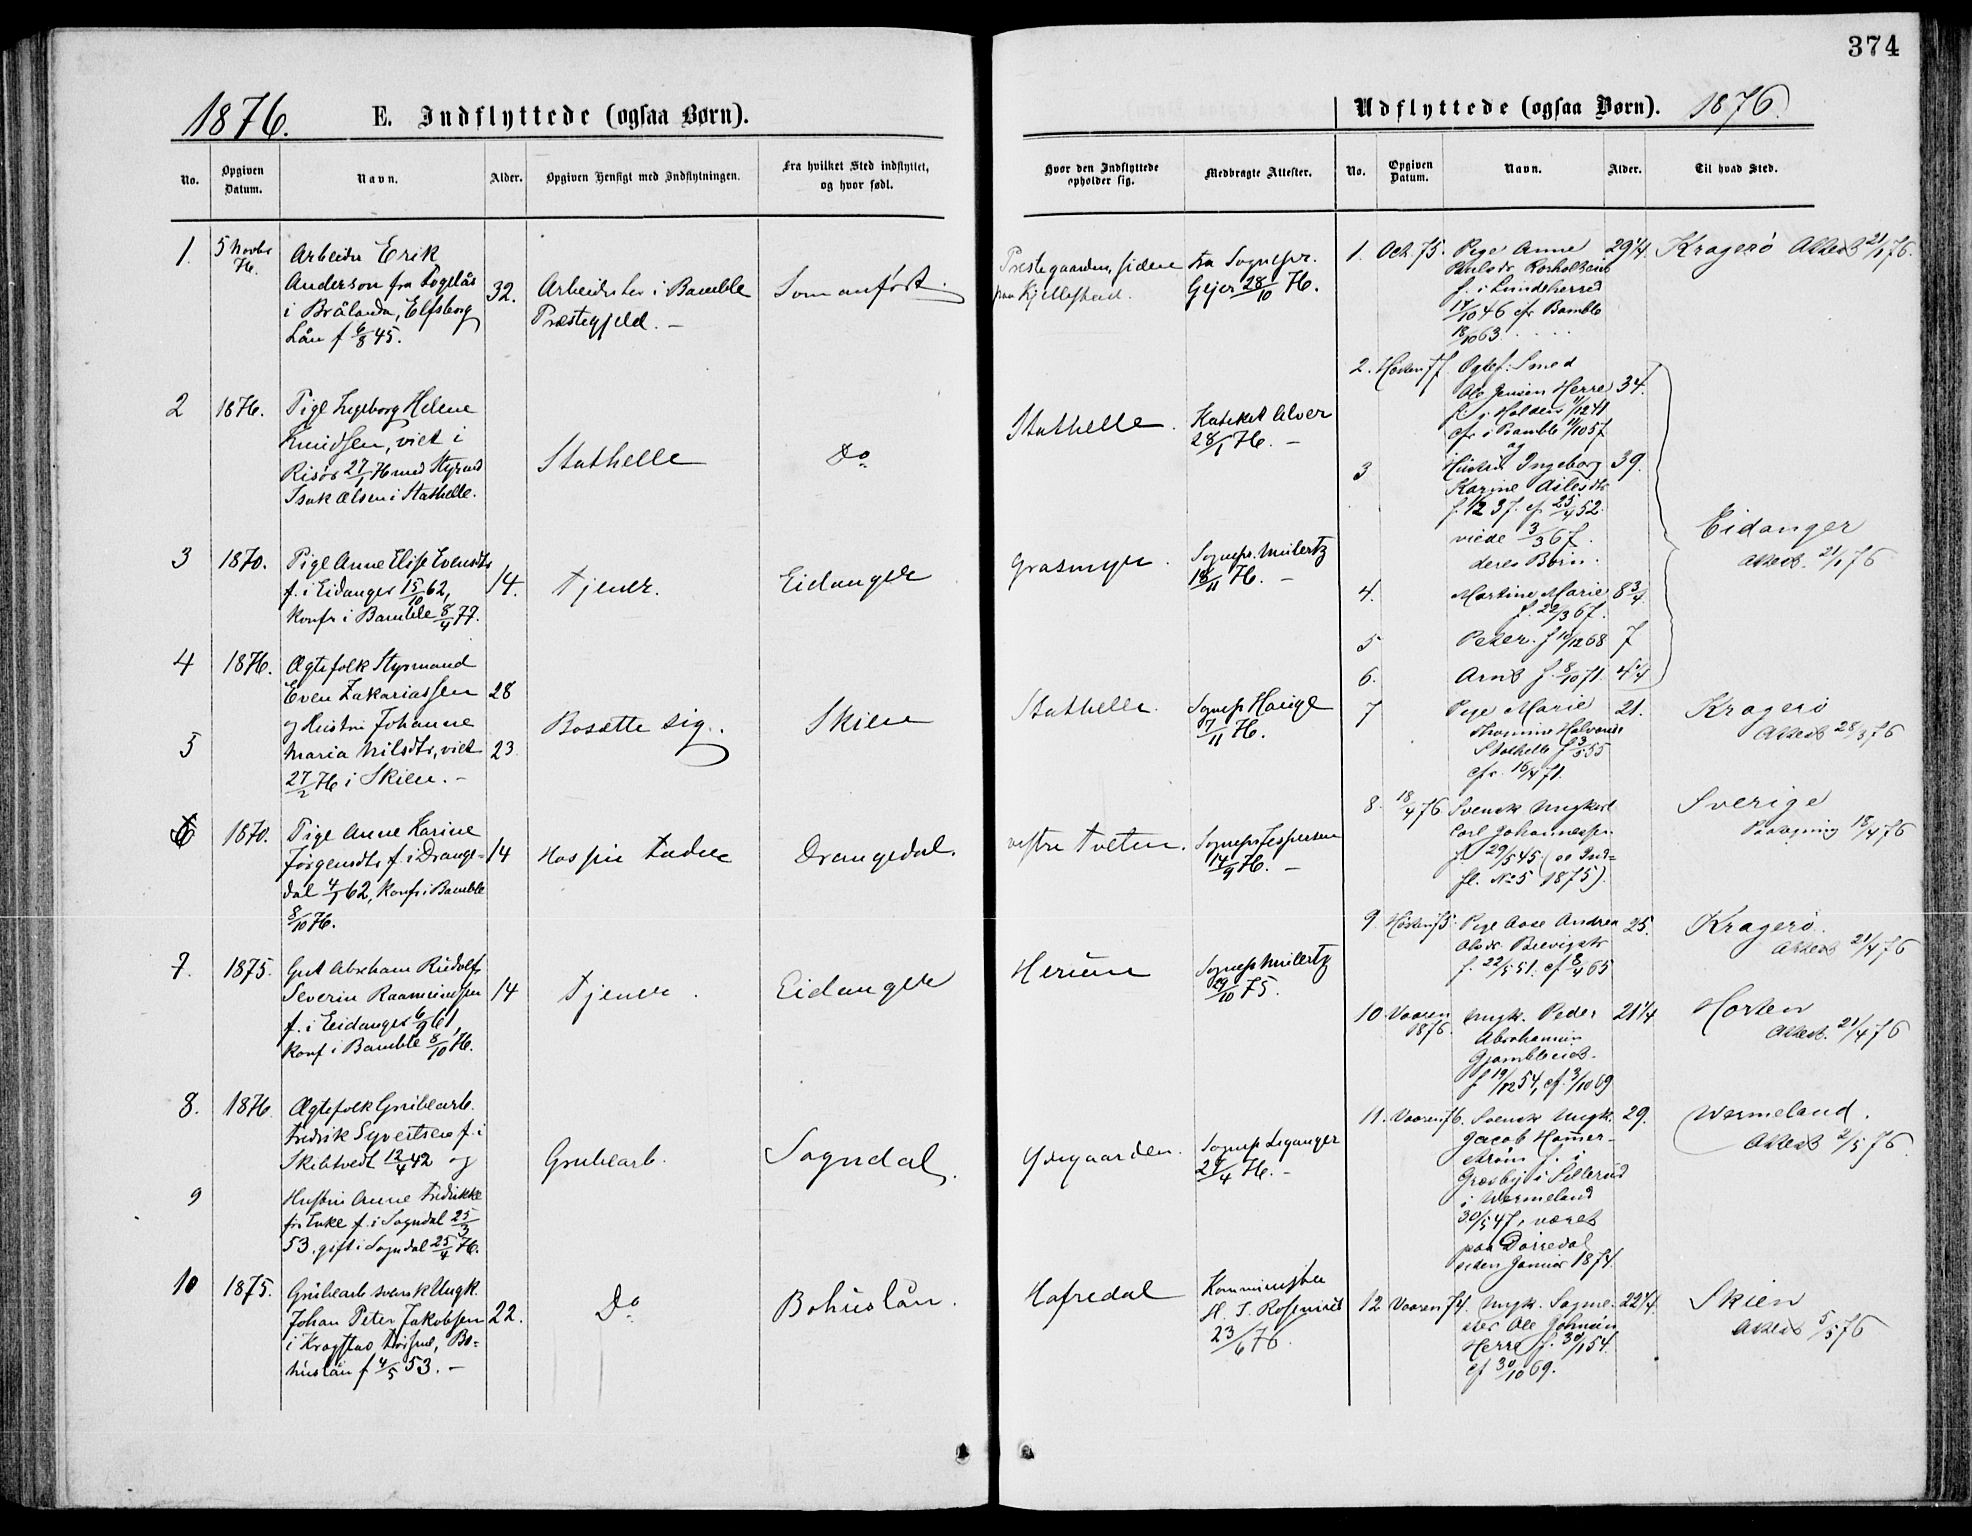 374
1876.
E. Indflyttede (ogsaa Børn).
No.
Opgiven Datum.
Navn.
Alder.
Opgiven Hensigt med Indflytningen.
Fra hvilket Sted indflyttet, og hvor født.
1.
5 Novbr 76.
Arbeider Erik
Anderson fra
i Brålanda, Elfsborg
Län f 6/8 45.
32.
Arbeide her i Bamble
Præstegjeld. –
Som anført.
2
1876.
Pige Ingeborg Helene
Knudsen, viet i
Risør 27/1 76 med Styrmd
Isak Olsen i Stathelle.
Stathelle
Do
3
1870.
Pige Anne Elise Evensdtr
f. i Eidanger 15/10 62,
konf. i Bamble 8/4 77.
14.
Tjener.
Eidanger
4
1876.
Ægtefolk Styrmand
Even Zakariassen
28
og Hustru Johanne
5
Maria Nilsdtr, viet
23
27/2 76 i Skien. –
Bosætte sig.
Skien
6
1870.
Pige Anne Karine
Jørgensdtr f. i Drange-
dal 4/1 62, konf. i Bamble
8/10 76.
14
Hos sin Fader
Drangedal.
7.
1875.
Gut Abraham Rudolf
Severin Raamundsen
f. i Eidanger 6/9 61,
konf i Bamble 8/10 76.
14
Tjener.
Eidanger
8.
1876
Ægtefolk Grubearb.
Fredrik Syvertsen f. i
Skibtvedt 12/4 42 og
9
Hustru Anne Fredrikke
f. i Sogndal 25/3
53. gift i Sogndal 25/4 76.
Grubearb.
Sogndal.
10
1875.
Grubearb svensk Ungk.
Johan Peter Jakobsen
i
huslän f 4/5 53. –
22.
Do
Bohuslän.
Udflyttede (ogsaa Børn).
1876.
Hvor den Indflyttede opholder sig.
Medbragte Attester.
No.
Opgiven Datum.
Navn.
Alder.
Til hvad Sted.
Prestegaarden, siden
paa
fra Sognepr.
Gejer 28/10 76.
Stathelle.
Kateket Alver
28/1 76. –
Grasmyr.
Sognepr. Milertz
18/11 76. –
Stathelle.
Sognepr Hauge
7/11 76.
vestre Tveten.
Sognepr Jespersen
14/9 76. –
Herum
Sognepr Milertz
29/10 75.
Ødegaarden.
Sognepr Leganger
29/4 76. –
Hafredal
Kommminister
23/6 76.
1.
Oct. 75.
Pige Anne
f. i Lundeherred
17/10 46 cfr. Bamble
18/10 63.
29 1/4
Kragerø Attest 21/1 76.
2.
Høsten 75
Ægtef. Smed
Ole Jensen Herre
34.
f. i Holden 11/12 41
cfr. i Bamble 11/10 57
og
3
Hustru Ingeborg
39.
Karine
f. 1/2 37. cf 25/4 52.
viede 3/3 67.
deres Børn:
4.
Martine Marie
8 3/4
f. 22/3 67.
5
Peter. f 10/12 68
7
6.
Arnt f. 8/10 71.
4 1/4
Eidanger
Attest. 21/1 76
7
Pige Marie
Thomine Halvorsdr
Stathelle f 3/5 55
cfr. 16/4 71.
21.
Kragerø
Attest 28/3 76
8.
18/4 76
Svensk Ungkarl
Carl Johannessen
f. 29/5 45 (se Ind-
fl. No 5 1875).
Sverige
Paategning 18/4 76
9
Høsten 75.
Pige Aase Andrea
Olsdr.
f. 22/5 51. cf 8/4 65
25.
Kragerø.
Attest 21/4 76
10
Vaaren 1876.
Ungk. Peder
Abrahamsen
f 19/12 54, cf. 3/10 69
21 1/4
Horten
Attest. 21/4 76
11.
Vaaren 76.
Svensk Ungk.
Jacob Hamer-
strøm f. i
i Sillerud
i Wermeland
30/5 47, været
paa Dørredal
siden Januar 1874.
29.
Wermeland.
Attest 2/5 76
12
Vaaren 74.
Ungk.
Ole Johnsen
Herre f. 30/1 54.
cf 30/10 69.
22 1/4.
Skien
Attest 5/5 76